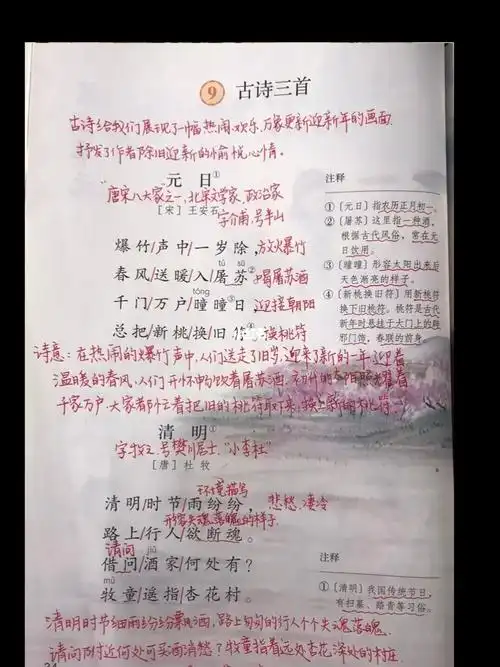 9 古诗三首
古诗给我们展现了一幅热闹、欢乐、万象更新迎新年的画面
抒发了作者除旧迎新的愉悦心情。
元日①
唐宋八大家之一,北宋文学家,政治家
[宋] 王安石 字介甫,号半山
爆竹/声中/一岁除,放火爆竹
tú sū
春风/送暖/入/屠苏②。喝屠苏酒
tóng
千门/万户/曈曈③日,迎接朝阳
总把/新桃/换/旧符④。换桃符
诗意:在热闹的爆竹声中,人们送走了旧岁,迎来了新的一年,迎着
温暖的春风,人们开怀畅饮着屠苏酒,初升的太阳照耀着
千家万户,大家都忙着把旧的桃符取下来,换上新的桃符。
注释
①〔元日〕指农历正月初一。
②〔屠苏〕这里指一种酒,
根据古代风俗,常在元
日饮用。
③〔曈曈〕形容太阳出来后
天色渐亮的样子。
④〔新桃换旧符〕用新桃符
换下旧桃符。桃符是古代
新年时悬挂于大门上的辟
邪门饰,春联的前身。
清明①
字牧之,号樊川居士,“小李杜”
[唐] 杜牧
环境描写
清明/时节/雨纷纷,悲愁、凄冷
形容失魂落魄的样子
路上/行人/欲断魂。
请问 jiǔ
借问/酒家/何处有?
mù
牧童/遥指/杏花村。
注释
①〔清明〕我国传统节日,
有扫墓、踏青等习俗。
清明时节细雨纷纷飘洒,路上匆匆的行人个个失魂落魄
请问附近何处可买酒消愁?牧童指着远处杏花深处的村庄